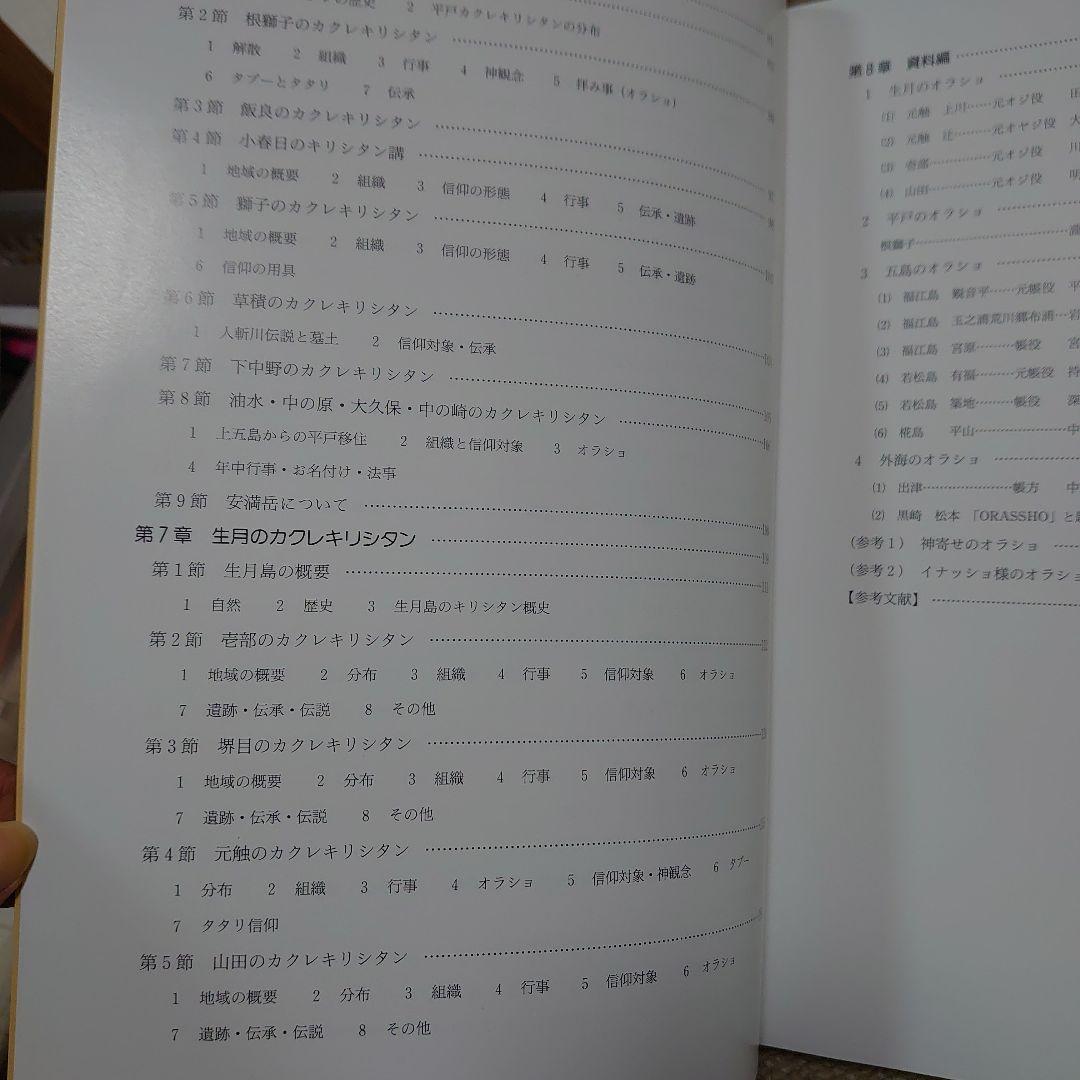 の歴史 2 平戸カクレキリシタンの分布
第2節 根獅子のカクレキリシタン
1 解散 2 組織 3 行事 4 神観念 5 拝み事(オラショ)
6 タブーとタタリ 7 伝承
第3節 飯良のカクレキリシタン
第4節 小春日のキリシタン講
1 地域の概要 2 組織 3 信仰の形態 4 行事 5 伝承・遺跡
第5節 獅子のカクレキリシタン
1 地域の概要 2 組織 3 信仰の形態 4 行事 5 伝承・遺跡
6 信仰の用具
第6節 草積のカクレキリシタン
1 人斬川伝説と墓土 2 信仰対象・伝承
第7節 下中野のカクレキリシタン
第8節 油水・中の原・大久保・中の崎のカクレキリシタン
1 上五島からの平戸移住 2 組織と信仰対象 3 オラショ
4 年中行事・お名付け・法事
第9節 安満岳について
第7章 生月のカクレキリシタン
第1節 生月島の概要
1 自然 2 歴史 3 生月島のキリシタン概史
第2節 壱部のカクレキリシタン
1 地域の概要 2 分布 3 組織 4 行事 5 信仰対象 6 オラショ
7 遺跡・伝承・伝説 8 その他
第3節 堺目のカクレキリシタン
1 地域の概要 2 分布 3 組織 4 行事 5 信仰対象 6 オラショ
7 遺跡・伝承・伝説 8 その他
第4節 元触のカクレキリシタン
1 分布 2 組織 3 行事 4 オラショ 5 信仰対象・神観念 6 タブー
7 タタリ信仰
第5節 山田のカクレキリシタン
1 地域の概要 2 分布 3 組織 4 行事 5 信仰対象 6 オラショ
7 遺跡・伝承・伝説 8 その他
第8章 資料編
1 生月のオラショ
(1) 元触 上川……元オジ役 田
(2) 元触 辻………元オヤジ役 大
(3) 壱部……………元オジ役 川
(4) 山田……………元オジ役 明
2 平戸のオラショ
根獅子
3 五島のオラショ
(1) 福江島 観音平……元帳役 平
(2) 福江島 玉之浦荒川郷布浦…岩
(3) 福江島 宮原………帳役 宮
(4) 若松島 有福………元帳役 持
(5) 若松島 築地………帳役 深
(6) 椛島 平山…………………中
4 外海のオラショ
(1) 出津…………………帳方 中
(2) 黒崎 松本 「ORASSHO」と
(参考1) 神寄せのオラショ
(参考2) イナッショ様のオラショ
【参考文献】